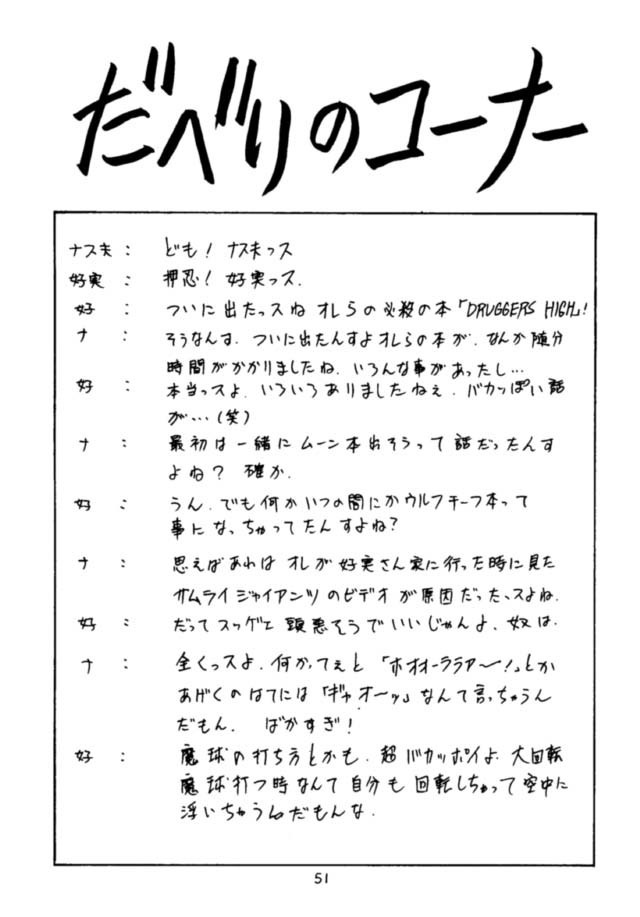 だべりのコーナー
ナス夫： ども！ナス夫っス
好実： 押忍！好実っス.
好： ついに出たっスね オレらの必殺の本「DRUGGERS HIGH」！
ナ： そうなんす. ついに出たんすよオレらの本が. なんか随分
時間がかかりましたね. いろんな事があったし…
好： 本当っスよ. いろいろありましたねぇ. バカっぽい話
が…(笑)
ナ： 最初は一緒にムーン本出そうって話だったんす
よね？ 確か.
好： うん. でも何かいつの間にかウルフチーフ本って
事になっちゃってたんすよね？
ナ： 思えばあれは オレが好実さん家に行った時に見た
サムライジャイアンツのビデオが原因だったっスよね.
好： だってスッゲェ頭悪そうでいいじゃんよ. 奴は.
ナ： 全くっスよ. 何かってぇと「ホオオーララアー！」とか
あげくのはてには「ギャオーッ」なんて言っちゃうん
だもん. ばかすぎ！
好： 魔球の打ち方とかも. 超バカッポイよ. 大回転
魔球打つ時なんて自分も回転しちゃって空中に
浮いちゃうんだもんな.
51